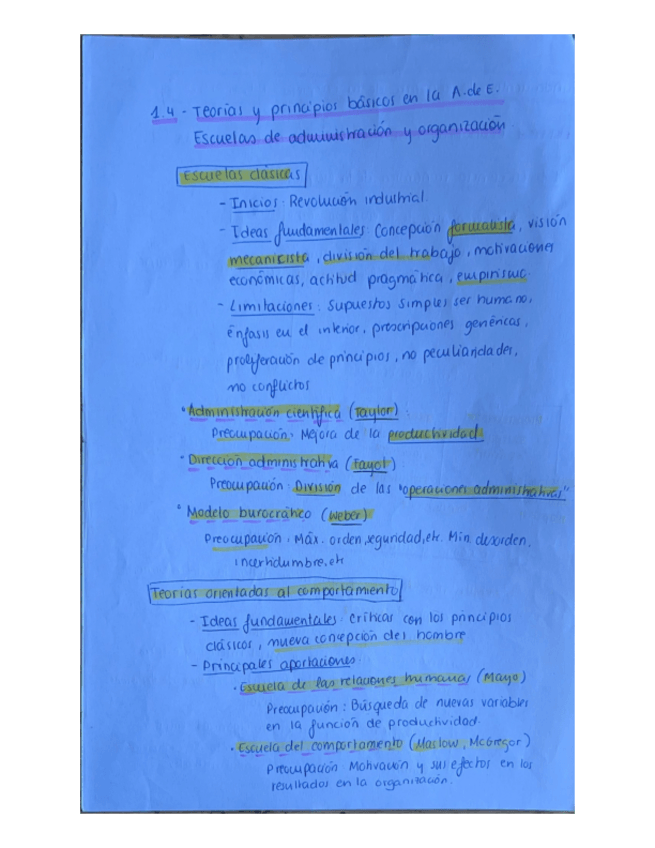 1.4 - Teorías y principios básicos en la A. de E.
Escuelas de administración y organización
Escuelas clásicas
- Inicios: Revolución industrial.
- Ideas fundamentales: Concepción formalista, visión
mecanicista, división del trabajo, motivaciones
económicas, actitud pragmática, empirismo.
- Limitaciones: Supuestos simples ser humano,
énfasis en el interior, prescripciones genéricas,
proliferación de principios, no peculiaridades,
no conflictos
• Administración científica (Taylor):
Preocupación: Mejora de la productividad
• Dirección administrativa (Fayol):
Preocupación: División de las "operaciones administrativas"
• Modelo burocrático (Weber)
Preocupación: Máx. orden, seguridad, etc. Min. desorden,
incertidumbre, etc
Teorías orientadas al comportamiento
- Ideas fundamentales: Críticas con los principios
clásicos, nueva concepción del hombre
- Principales aportaciones:
• Escuela de las relaciones humanas (Mayo)
Preocupación: Búsqueda de nuevas variables
en la función de productividad.
• Escuela del comportamento (Maslow, McGregor)
Preocupación: Motivación y sus efectos en los
resultados en la organización.